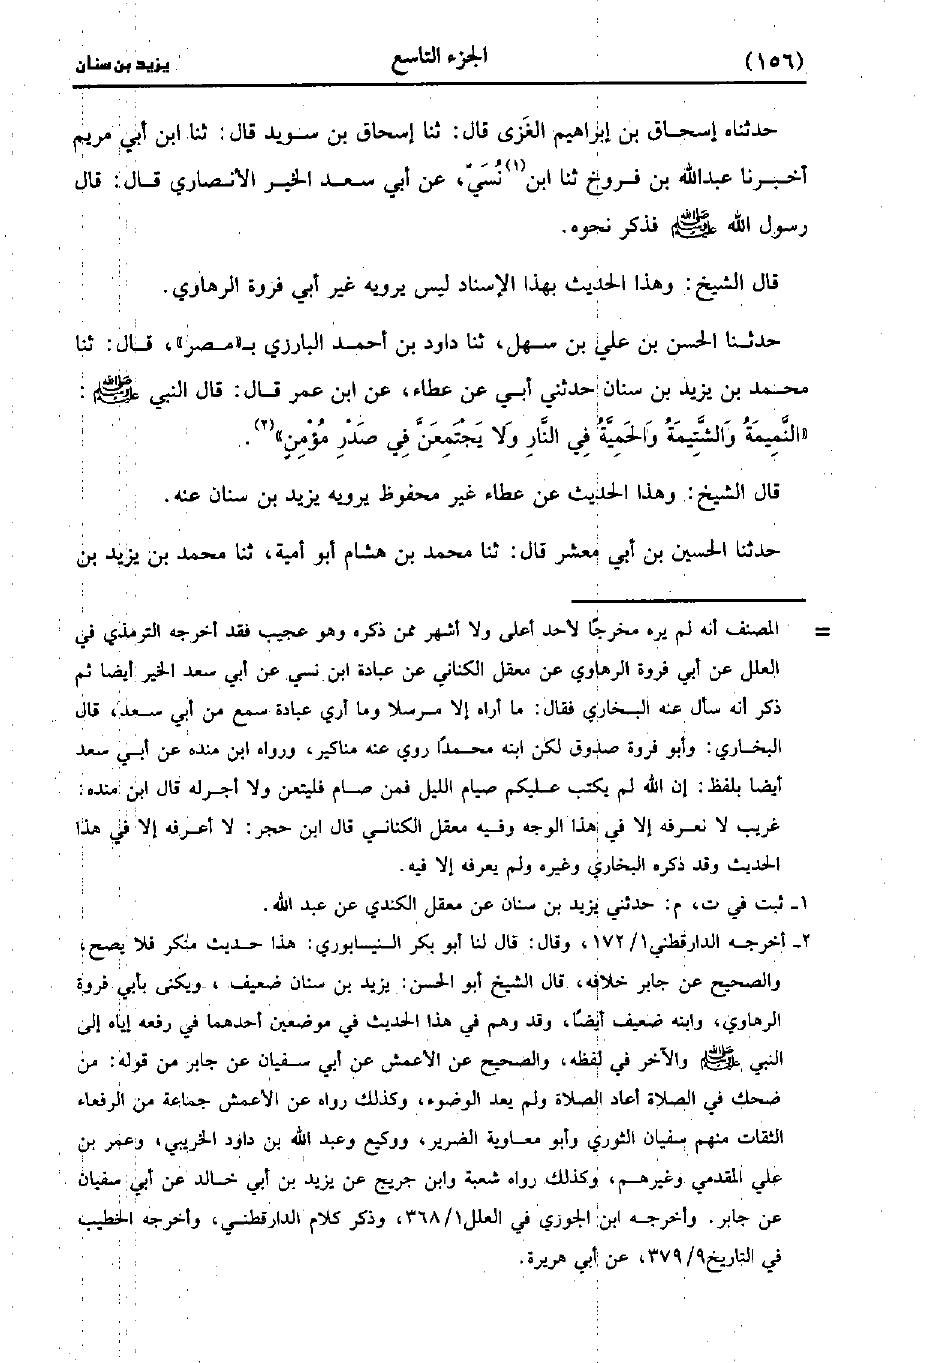 (١٥٦) الجزء التاسع يزيد بن سنان
حدثناه إسحاق بن إبراهيم الغَزى قال: ثنا إسحاق بن سويد قال: ثنا ابن أبي مريم
أخبرنا عبدالله بن فروخ ثنا ابن(١) نُسَيّ، عن أبي سعد الخير الأنصاري قال: قال
رسول الله ﷺ فذكر نحوه.
قال الشيخ: وهذا الحديث بهذا الإسناد ليس يرويه غير أبي فروة الرهاوي.
حدثنا الحسن بن علي بن سهل، ثنا داود بن أحمد البارزي بـ«مصر»، قال: ثنا
محمد بن يزيد بن سنان حدثني أبي عن عطاء، عن ابن عمر قال: قال النبي ﷺ:
«النَّمِيمَةُ وَالشَّتِيمَةُ وَالحَمِيَّةُ فِي النَّارِ وَلَا يَجْتَمِعَنَّ فِي صَدْرِ مُؤْمِنٍ»(٢).
قال الشيخ: وهذا الحديث عن عطاء غير محفوظ يرويه يزيد بن سنان عنه.
حدثنا الحسين بن أبي معشر قال: ثنا محمد بن هشام أبو أمية، ثنا محمد بن يزيد بن
= المصنف أنه لم يره مخرجًا لأحد أعلى ولا أشهر ممن ذكره وهو عجيب فقد أخرجه الترمذي في
العلل عن أبي فروة الرهاوي عن معقل الكناني عن عبادة ابن نسي عن أبي سعد الخير أيضا ثم
ذكر أنه سأل عنه البخاري فقال: ما أراه إلا مرسلا وما أري عبادة سمع من أبي سعد، قال
البخاري: وأبو فروة صدوق لكن ابنه محمدًا روي عنه مناكير، ورواه ابن منده عن أبي سعد
أيضا بلفظ: إن الله لم يكتب عليكم صيام الليل فمن صام فليتعن ولا أجرله قال ابن منده:
غريب لا نعرفه إلا في هذا الوجه وفيه معقل الكناني قال ابن حجر: لا أعرفه إلا في هذا
الحديث وقد ذكره البخاري وغيره ولم يعرفه إلا فيه.
١ـ ثبت في ت، م: حدثني يزيد بن سنان عن معقل الكندي عن عبد الله.
٢ـ أخرجه الدارقطني ١/ ١٧٢، وقال: قال لنا أبو بكر النيسابوري: هذا حديث منكر فلا يصح،
والصحيح عن جابر خلافه، قال الشيخ أبو الحسن: يزيد بن سنان ضعيف ، ويكنى بأبي فروة
الرهاوي، وابنه ضعيف أيضًا، وقد وهم في هذا الحديث في موضعين أحدهما في رفعه إياه إلى
النبي ﷺ والآخر في لفظه، والصحيح عن الأعمش عن أبي سفيان عن جابر من قوله: من
ضحك في الصلاة أعاد الصلاة ولم يعد الوضوء، وكذلك رواه عن الأعمش جماعة من الرفعاء
الثقات منهم سفيان الثوري وأبو معاوية الضرير، ووكيع وعبد الله بن داود الخريبي، وعمر بن
علي المقدمي وغيرهم، وكذلك رواه شعبة وابن جريج عن يزيد بن أبي خالد عن أبي سفيان
عن جابر. وأخرجه ابن الجوزي في العلل ١/ ٣٦٨، وذكر كلام الدارقطني، وأخرجه الخطيب
في التاريخ ٩/ ٣٧٩، عن أبي هريرة.